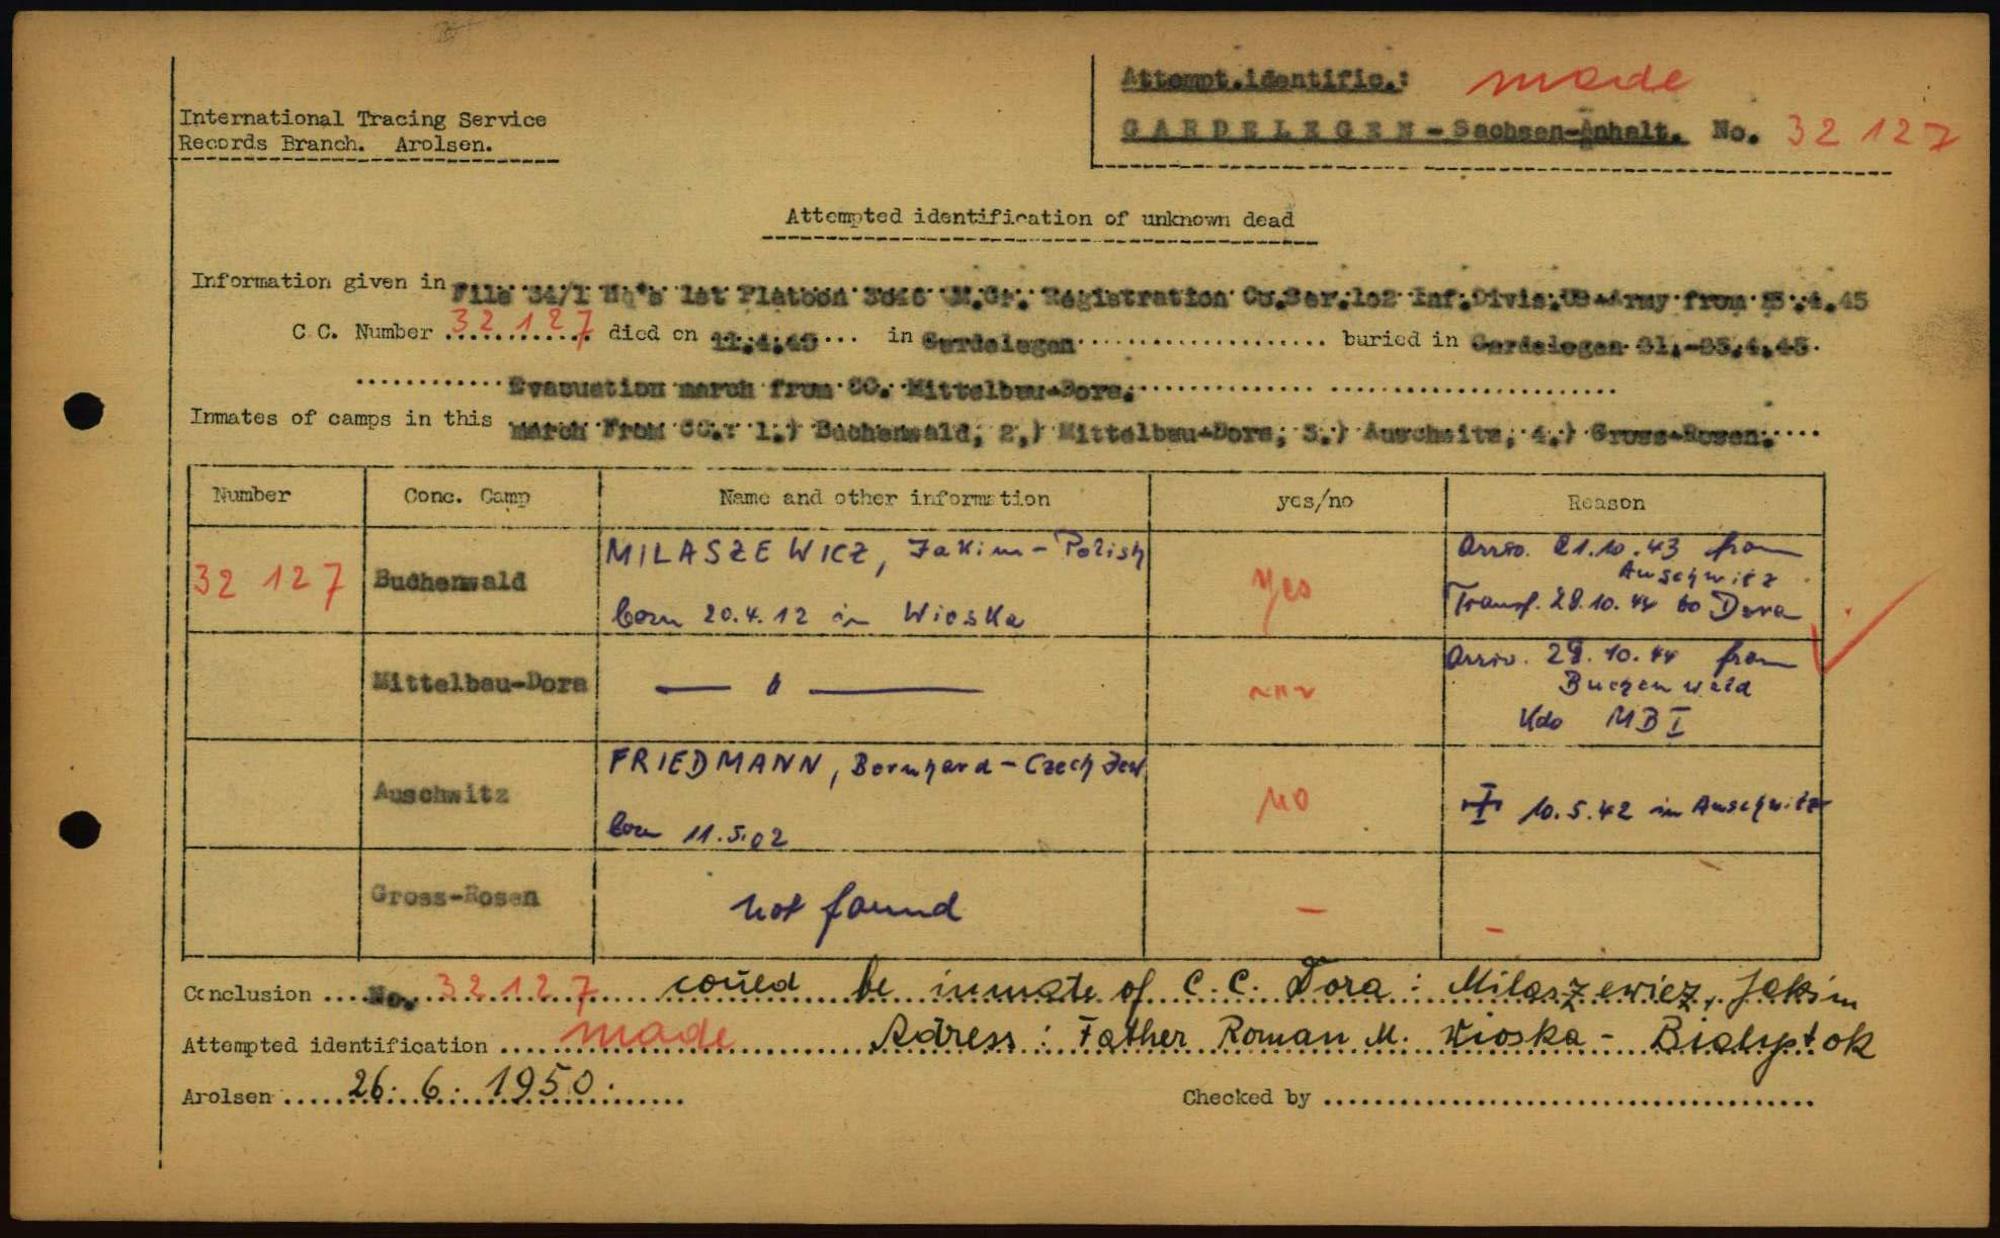 Attempt.identific.: made
International Tracing Service
GARDELEGEN - Sachsen-Anhalt. No. 32 127
Records Branch. Arolsen.
Attempted identification of unknown dead
Information given in File Hq's 1st Platoon Registration Co. Ser. 102 Inf. Divis. US-Army from .4.45
C.C. Number 32 127 died on in Gardelegen buried in Gardelegen
Evacuation march from CC. Mittelbau-Dora.
Inmates of camps in this march From CC.: 1.) Buchenwald, 2.) Mittelbau-Dora, 3.) Auschwitz, 4.) Gross-Rosen.
Number Conc. Camp Name and other information yes/no Reason
32 127 Buchenwald MILASZEWICZ, Jakim - Polish yes Arriv. 21.10.43 from
Auschwitz
born 20.4.12 in Wioska Transf. 28.10.44 to Dora
Mittelbau-Dora — " — Arriv. 28.10.44 from
Buchenwald
Kdo MB I
Auschwitz FRIEDMANN, Bernhard - Czech Jew no 10.5.42 in Auschwitz
born 11.5.02
Gross-Rosen not found - -
Conclusion No. 32 127 could be inmate of C.C. Dora: Milaszewicz, Jakim
Attempted identification made Adress: Father Roman M. Wioska - Bialystok
Arolsen 26. 6. 1950. Checked by